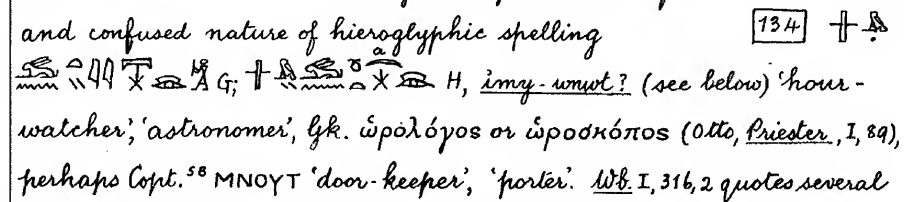 and confused nature of hieroglyphic spelling [134]
G; H, imy-wnwt? (see below) 'hour-
watcher', 'astronomer', Gk. ὡρολόγος or ὡροσκόπος (Otto, Priester, I, 89),
perhaps Copt.⁵⁸ ⲘⲚⲞⲨⲦ 'door-keeper', 'porter'. Wb. I, 316, 2 quotes several